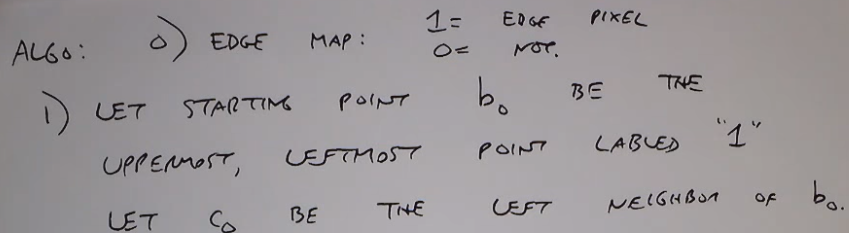 ALGO: 0) EDGE MAP: 1 = EDGE PIXEL
0 = NOT.
1) LET STARTING POINT b₀ BE THE
UPPERMOST, LEFTMOST POINT LABLED "1"
LET C₀ BE THE LEFT NEIGHBOR OF b₀.